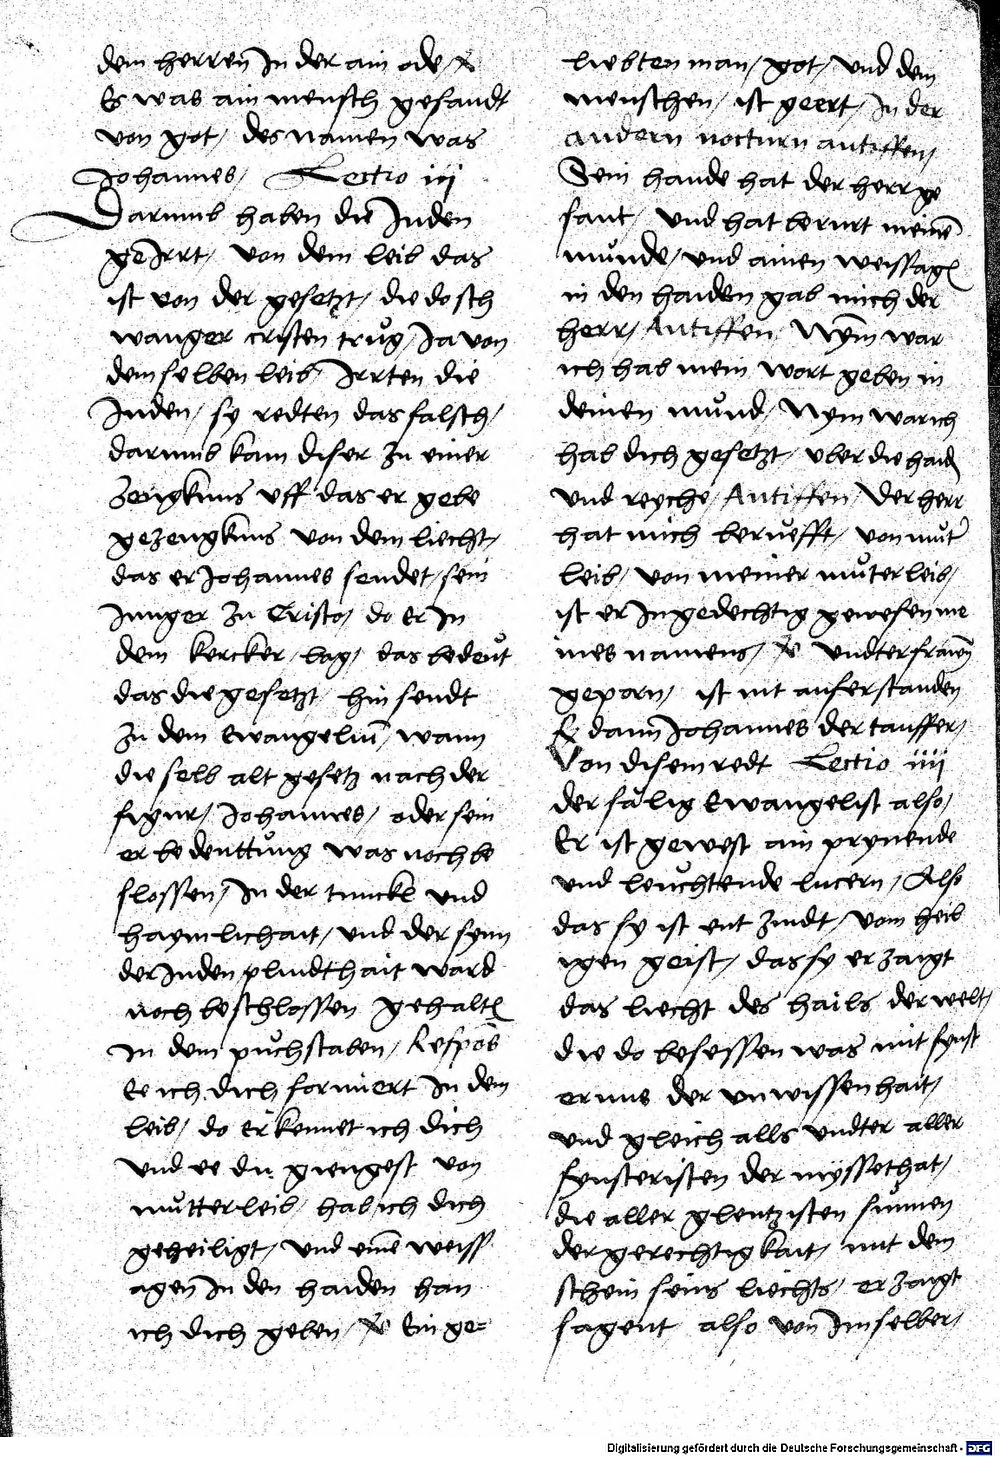 dem herren In der ain ode /
Es was ain mensch gesandt
von got / des namen was
Johannes / Lectio iij
Darumb haben die Juden
geIrrt / von dem leib das
ist von der gesetzt / die do sch
wanger cristen trůg / Ja von
dem selben leib Irrten die
Juden / sy redten das falsch /
darumb kam diser zu einer
Zeugknus vff das er gebe
gezeugknus von dem liecht /
das er Johannes sendet / sein
Junger zu Cristo / do er In
dem kercker lag / das bedeut
das die gesetzt hin sendt
zu dem Ewangeliū / wann
die selb alt gesetz nach der
figur / Johannes / oder sein
er bedenttůng was noch be
slossen / In der tunckl und
haymlichait / und der synn
der Juden plindthait ward
noch beschlossen gehaltē
In dem půchstaben / Respōs
Ee ich dich formiert In dem
leib / do erkennet ich dich
und ee du giengest von
můtter leib / hab ich dich
geheiligt / und einē weiss
agen In den haiden han
ich dich geben / Ein ge=
liebten man / got / und dem
menschen / ist geert / In der
andern nocturn antiffen /
Sein hande hat der herr ge
sant / und hat berurt meinē
můnde / und ainen weissagē
in den haiden gab mich der
herr / Antiffen Nym war
ich hab mein wort geben in
deinen můnd / Nym war ich
hab dich gesetzt / vber die haidē
und reyche / Antiffen / Der herr
hat mich beruefft / von můter
leib / von meiner můter leib /
ist er Ingedechtig gewesen me
ines namens / undter frawē
geporn / ist nit auferstanden
dann Johannes der tauffer /
Von disem redt Lectio iiij
der sälig Ewangelist also /
Er ist gewest ain prynende
und leuchtende lucern / Also
das sy ist entzindt / vom heil
igen geist / das sy erzaigt
das liecht des hails der welt /
die do besessen was mit fynst
ernus der vnwissenhait /
und gleich alls vndter aller
fynsteristen der myssethat /
die aller glentzisten sunnen
der gerechtigkait / mit dem
schein seins liechts / erzaigt
sagent also von Im selber /
Digitalisierung gefördert durch die Deutsche Forschungsgemeinschaft - DFG